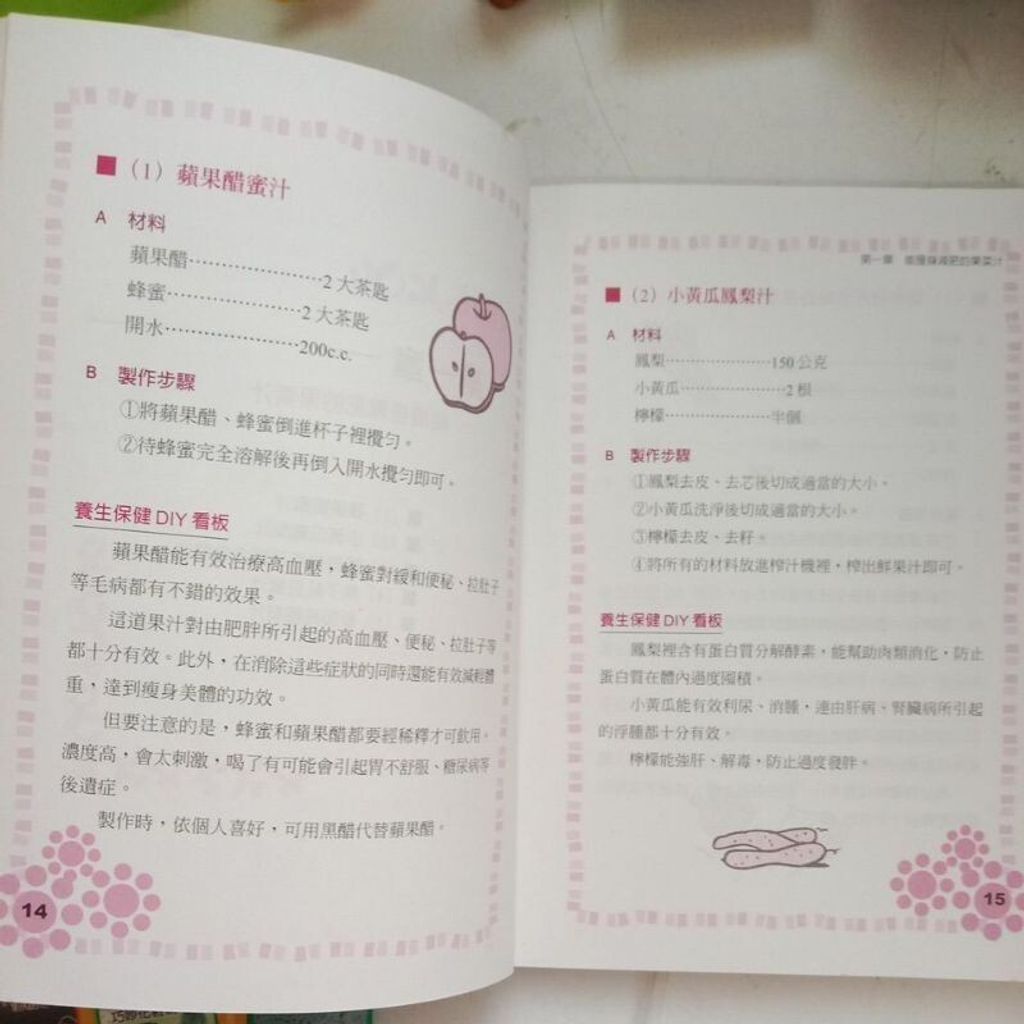 ■(1)蘋果醋蜜汁
A 材料
蘋果醋…………………2 大茶匙
蜂蜜…………………2 大茶匙
開水…………………200c.c.
B 製作步驟
①將蘋果醋、蜂蜜倒進杯子裡攪勻。
②待蜂蜜完全溶解後再倒入開水攪勻即可。
養生保健 DIY 看板
蘋果醋能有效治療高血壓，蜂蜜對緩和便秘、拉肚子
等毛病都有不錯的效果。
這道果汁對由肥胖所引起的高血壓、便秘、拉肚子等
都十分有效。此外，在消除這些症狀的同時還能有效減輕體
重，達到瘦身美體的功效。
但要注意的是，蜂蜜和蘋果醋都要經稀釋才可飲用。
濃度高，會太刺激，喝了有可能會引起胃不舒服、糖尿病等
後遺症。
製作時，依個人喜好，可用黑醋代替蘋果醋。
14
第一章 能瘦身減肥的果菜汁
■(2)小黃瓜鳳梨汁
A 材料
鳳梨…………………150 公克
小黃瓜…………………2 根
檸檬…………………半個
B 製作步驟
①鳳梨去皮、去芯後切成適當的大小。
②小黃瓜洗淨後切成適當的大小。
③檸檬去皮、去籽。
④將所有的材料放進榨汁機裡，榨出鮮果汁即可。
養生保健 DIY 看板
鳳梨裡含有蛋白質分解酵素，能幫助肉類消化，防止
蛋白質在體內過度囤積。
小黃瓜能有效利尿、消腫，連由肝病、腎臟病所引起
的浮腫都十分有效。
檸檬能強肝、解毒，防止過度發胖。
15